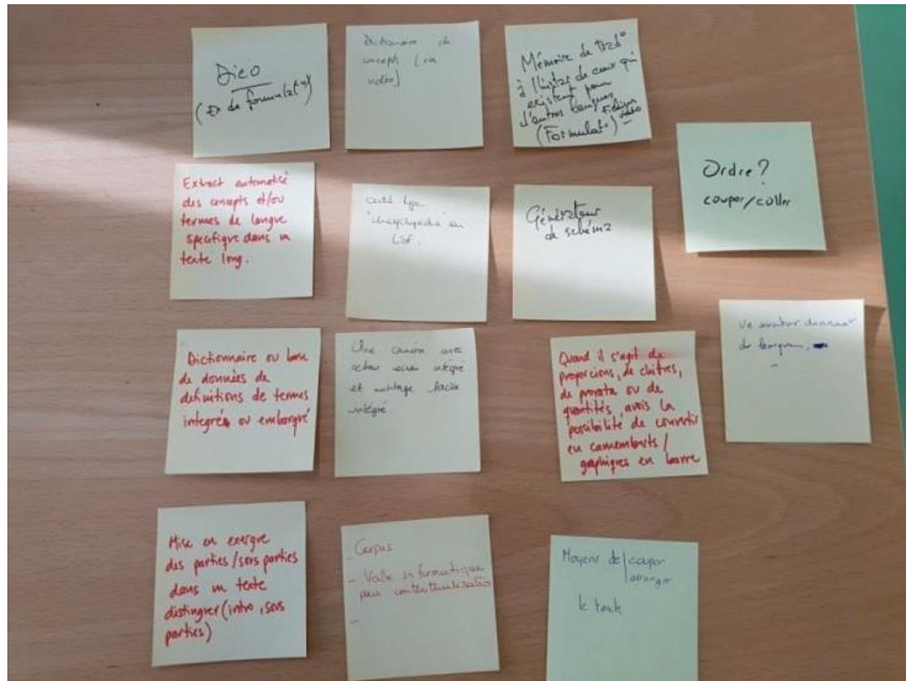 Dico
(Ex de formulat°)
Dictionnaire de
concepts (via
vidéo)
Mémoire de trad°
à l'instar de ceux qui
existent pour
d'autres langues
(Formulat°)
vidéo
Ordre ?
couper/coller
Extract automatisé
des concepts et/ou
termes de langue
specifique dans un
texte long.
outil type
"encyclopédie" en
LSF.
Générateur
de schéma
Dictionnaire ou base
de données de
definitions de termes
integrés ou embarqué
Une caméra avec
retour écran intégré
et montage facile
intégré.
Quand il s'agit de
proporcions, de chifres,
de prorata ou de
quantités, avoir la
possibilité de convertir
en camemberts /
graphiques en barre
Un
de
Mise en exergue
des parties/sous parties
dans un texte
distinguer (intro, sous
parties)
_ Corpus
- Valise informatique
pour contextualisation
-
Moyens de couper
arranger
le texte